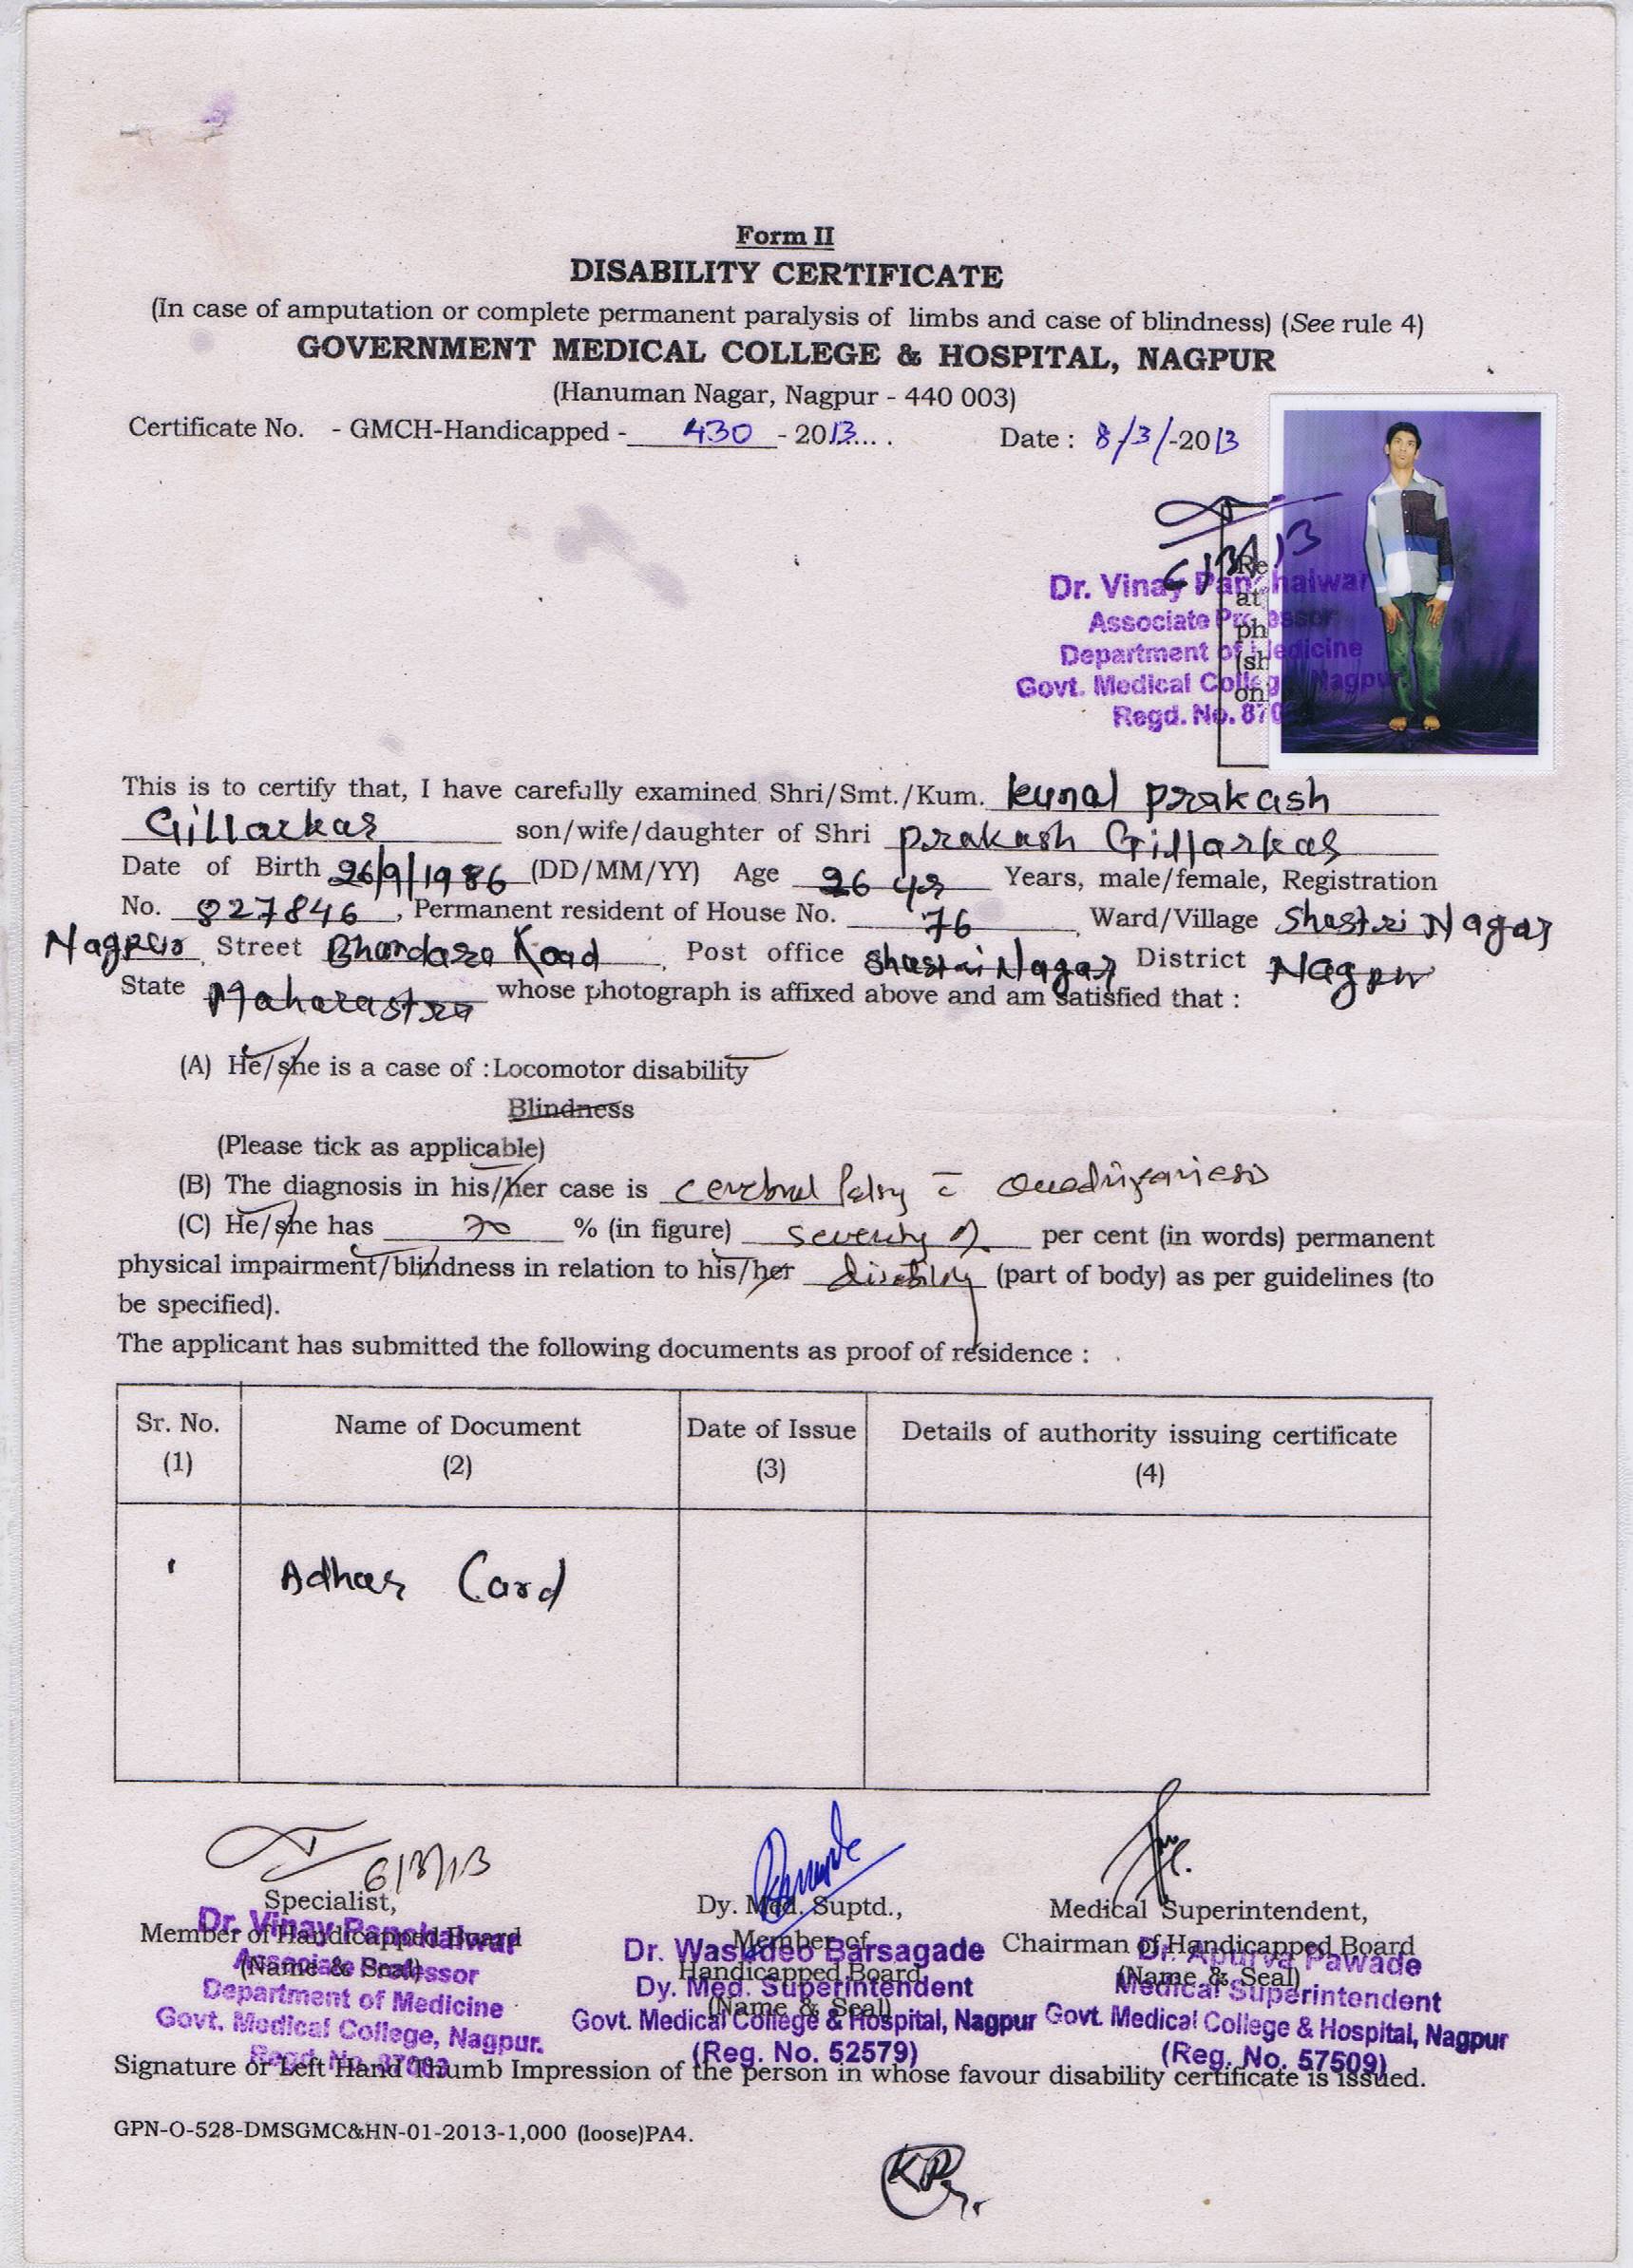 Form II
DISABILITY CERTIFICATE
(In case of amputation or complete permanent paralysis of limbs and case of blindness) (See rule 4)
GOVERNMENT MEDICAL COLLEGE & HOSPITAL, NAGPUR
(Hanuman Nagar, Nagpur - 440 003)
Certificate No. - GMCH-Handicapped - 430 - 2013.... Date : 8/3/-2013
6/3/13
Re
at
ph
(sh
on
Dr. Vinay Panchalwar
Associate Professor
Department of Medicine
Govt. Medical College, Nagpur.
Regd. No. 870
This is to certify that, I have carefully examined Shri/Smt./Kum. Kunal Prakash
Gillarkar son/wife/daughter of Shri Prakash Gillarkar
Date of Birth 26/9/1986 (DD/MM/YY) Age 26 yr Years, male/female, Registration
No. 827846, Permanent resident of House No. 76, Ward/Village Shastri Nagar
Nagpur, Street Bhandara Road, Post office Shastri Nagar District Nagpur
State Maharastra whose photograph is affixed above and am satisfied that :
(A) He/she is a case of :Locomotor disability
Blindness
(Please tick as applicable)
(B) The diagnosis in his/her case is cerebral Palsy c̄
(C) He/she has 70 % (in figure) seventy % per cent (in words) permanent
physical impairment/blindness in relation to his/her disability (part of body) as per guidelines (to
be specified).
The applicant has submitted the following documents as proof of residence :
Sr. No. Name of Document Date of Issue Details of authority issuing certificate
(1) (2) (3) (4)
Adhar Card
6/3/13
Specialist, Dy. Med. Suptd., Medical Superintendent,
Member of Handicapped Board Member of Chairman of Handicapped Board
(Name & Seal) Handicapped Board (Name & Seal)
(Name & Seal)
Dr. Vinay Panchalwar
Associate Professor
Department of Medicine
Govt. Medical College, Nagpur.
Regd. No.
Dr. Wasudeo Barsagade
Dy. Med. Superintendent
Govt. Medical College & Hospital, Nagpur
(Reg. No. 52579)
Dr. Apurva Pawade
Medical Superintendent
Govt. Medical College & Hospital, Nagpur
(Reg. No. 57509)
Signature or Left Hand Thumb Impression of the person in whose favour disability certificate is issued.
GPN-O-528-DMSGMC&HN-01-2013-1,000 (loose)PA4.